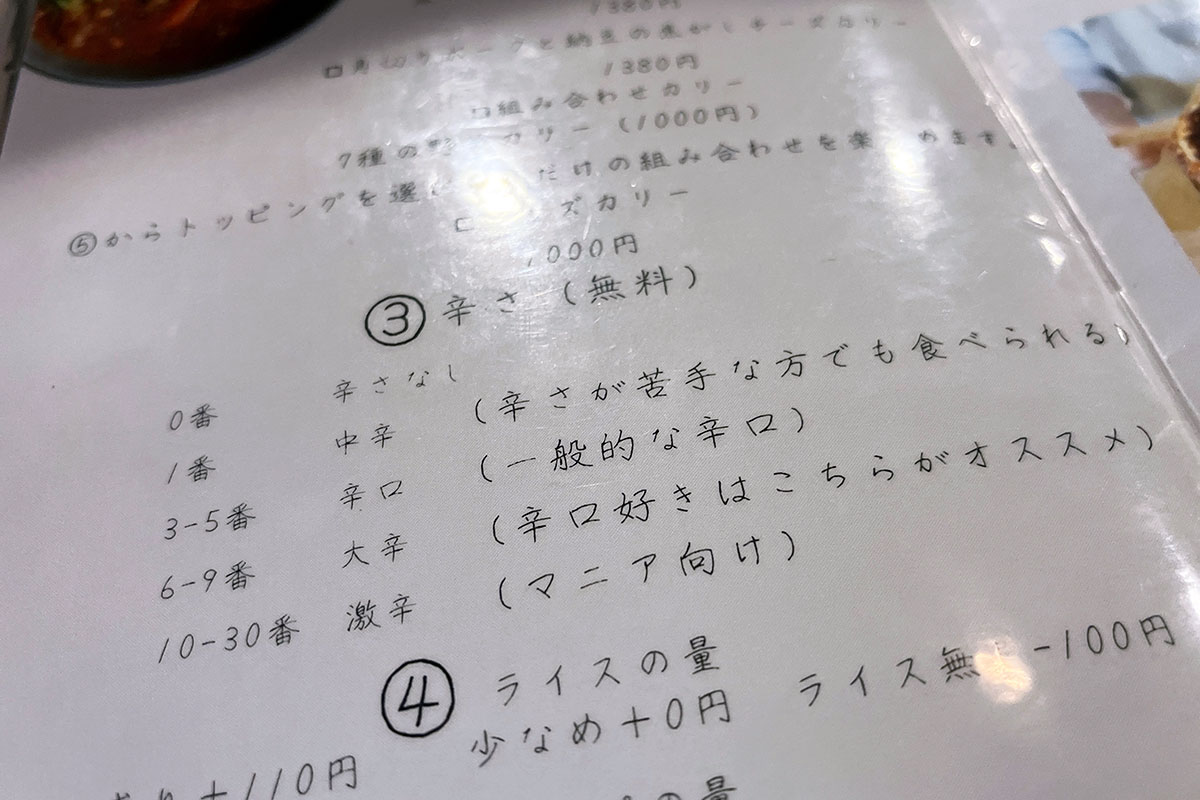 1380円
□角切りポークと納豆の焦がしチーズカリー
1380円
□組み合わせカリー
7種の野 カリー (1000円)
⑤からトッピングを選 だけの組み合わせを楽 めます
ズカリー
000円
③ 辛さ (無料)
0番 辛さなし
1番 中辛 (辛さが苦手な方でも食べられる)
3-5番 辛口 (一般的な辛口)
6-9番 大辛 (辛口好きはこちらがオススメ)
10-30番 激辛 (マニア向け)
④ ライスの量
少なめ+0円 ライス無 -100円
+110円
の量